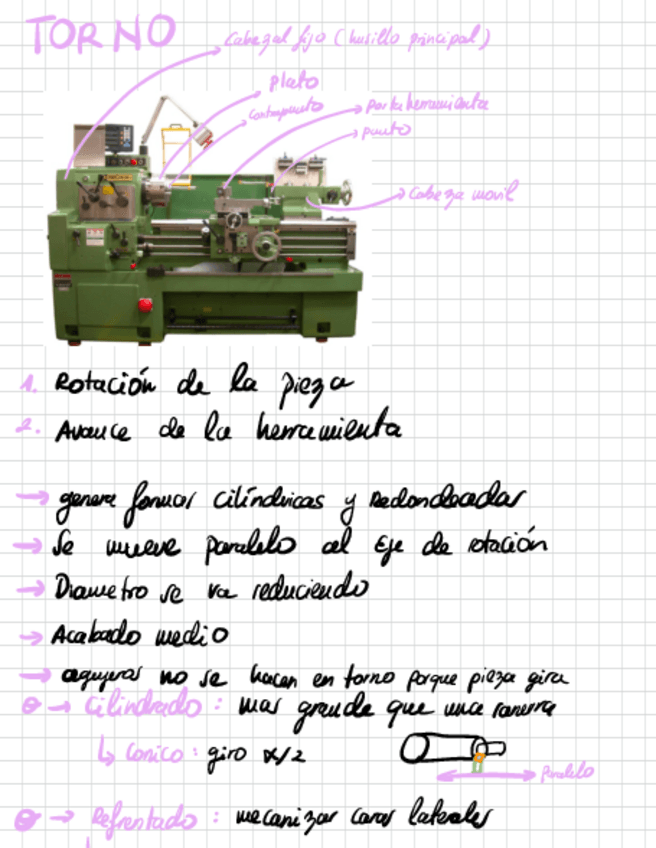 TORNO
Cabezal fijo (husillo principal)
plato
Contrapunto
Porta herramienta
punto
Cabeza movil
1. Rotación de la pieza
2. Avance de la herramienta
→ genera formas cilíndricas y Redondeadas
→ Se mueve paralelo al Eje de rotación
→ Diametro se va reduciendo
→ Acabado medio
→ agujeros no se hacen en torno porque pieza gira
→ Cilindrado: mas grande que una ranura
↳ Conico: giro α/2
Paralelo
→ Refrentado: mecanizar caras laterales